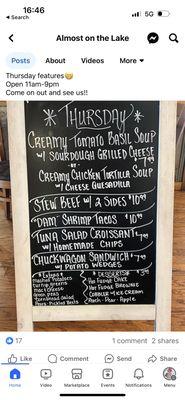 16:46
5G
Almost on the Lake
Posts
About
Videos
More
Thursday features😋
Open 11am-9pm
Come on out and see us!!
* THURSDAY *
CREAMY TOMATO BASIL SOUP
W/ SOURDOUGH GRILLED CHEESE
-OR-
$7.99
CREAMY CHICKEN TORTILLA SOUP
W/ CHEESE QUESADILLA
STEW BEEF W/ 2 SIDES $10.99
"DAM" SHRIMP TACOS $10.99
TUNA SALAD CROISSANT $7.99
W/ HOMEMADE CHIPS
CHUCKWAGON SANDWICH $7.99
W/ POTATO WEDGES
* Extras *
Mashed Potatoes
turnip greens
mac & cheese
green peas
cornbread salad
Pears - Pickled Beets
DESSERTS $3.99
HOT FUDGE CAKE
HOT FUDGE BROWNIE
COBBLER W/ ICE CREAM
Peach - Pear - Apple
17
1 comment 2 shares
Like
Comment
Send
Share
Home
Video
Marketplace
Events
Notifications
Menu